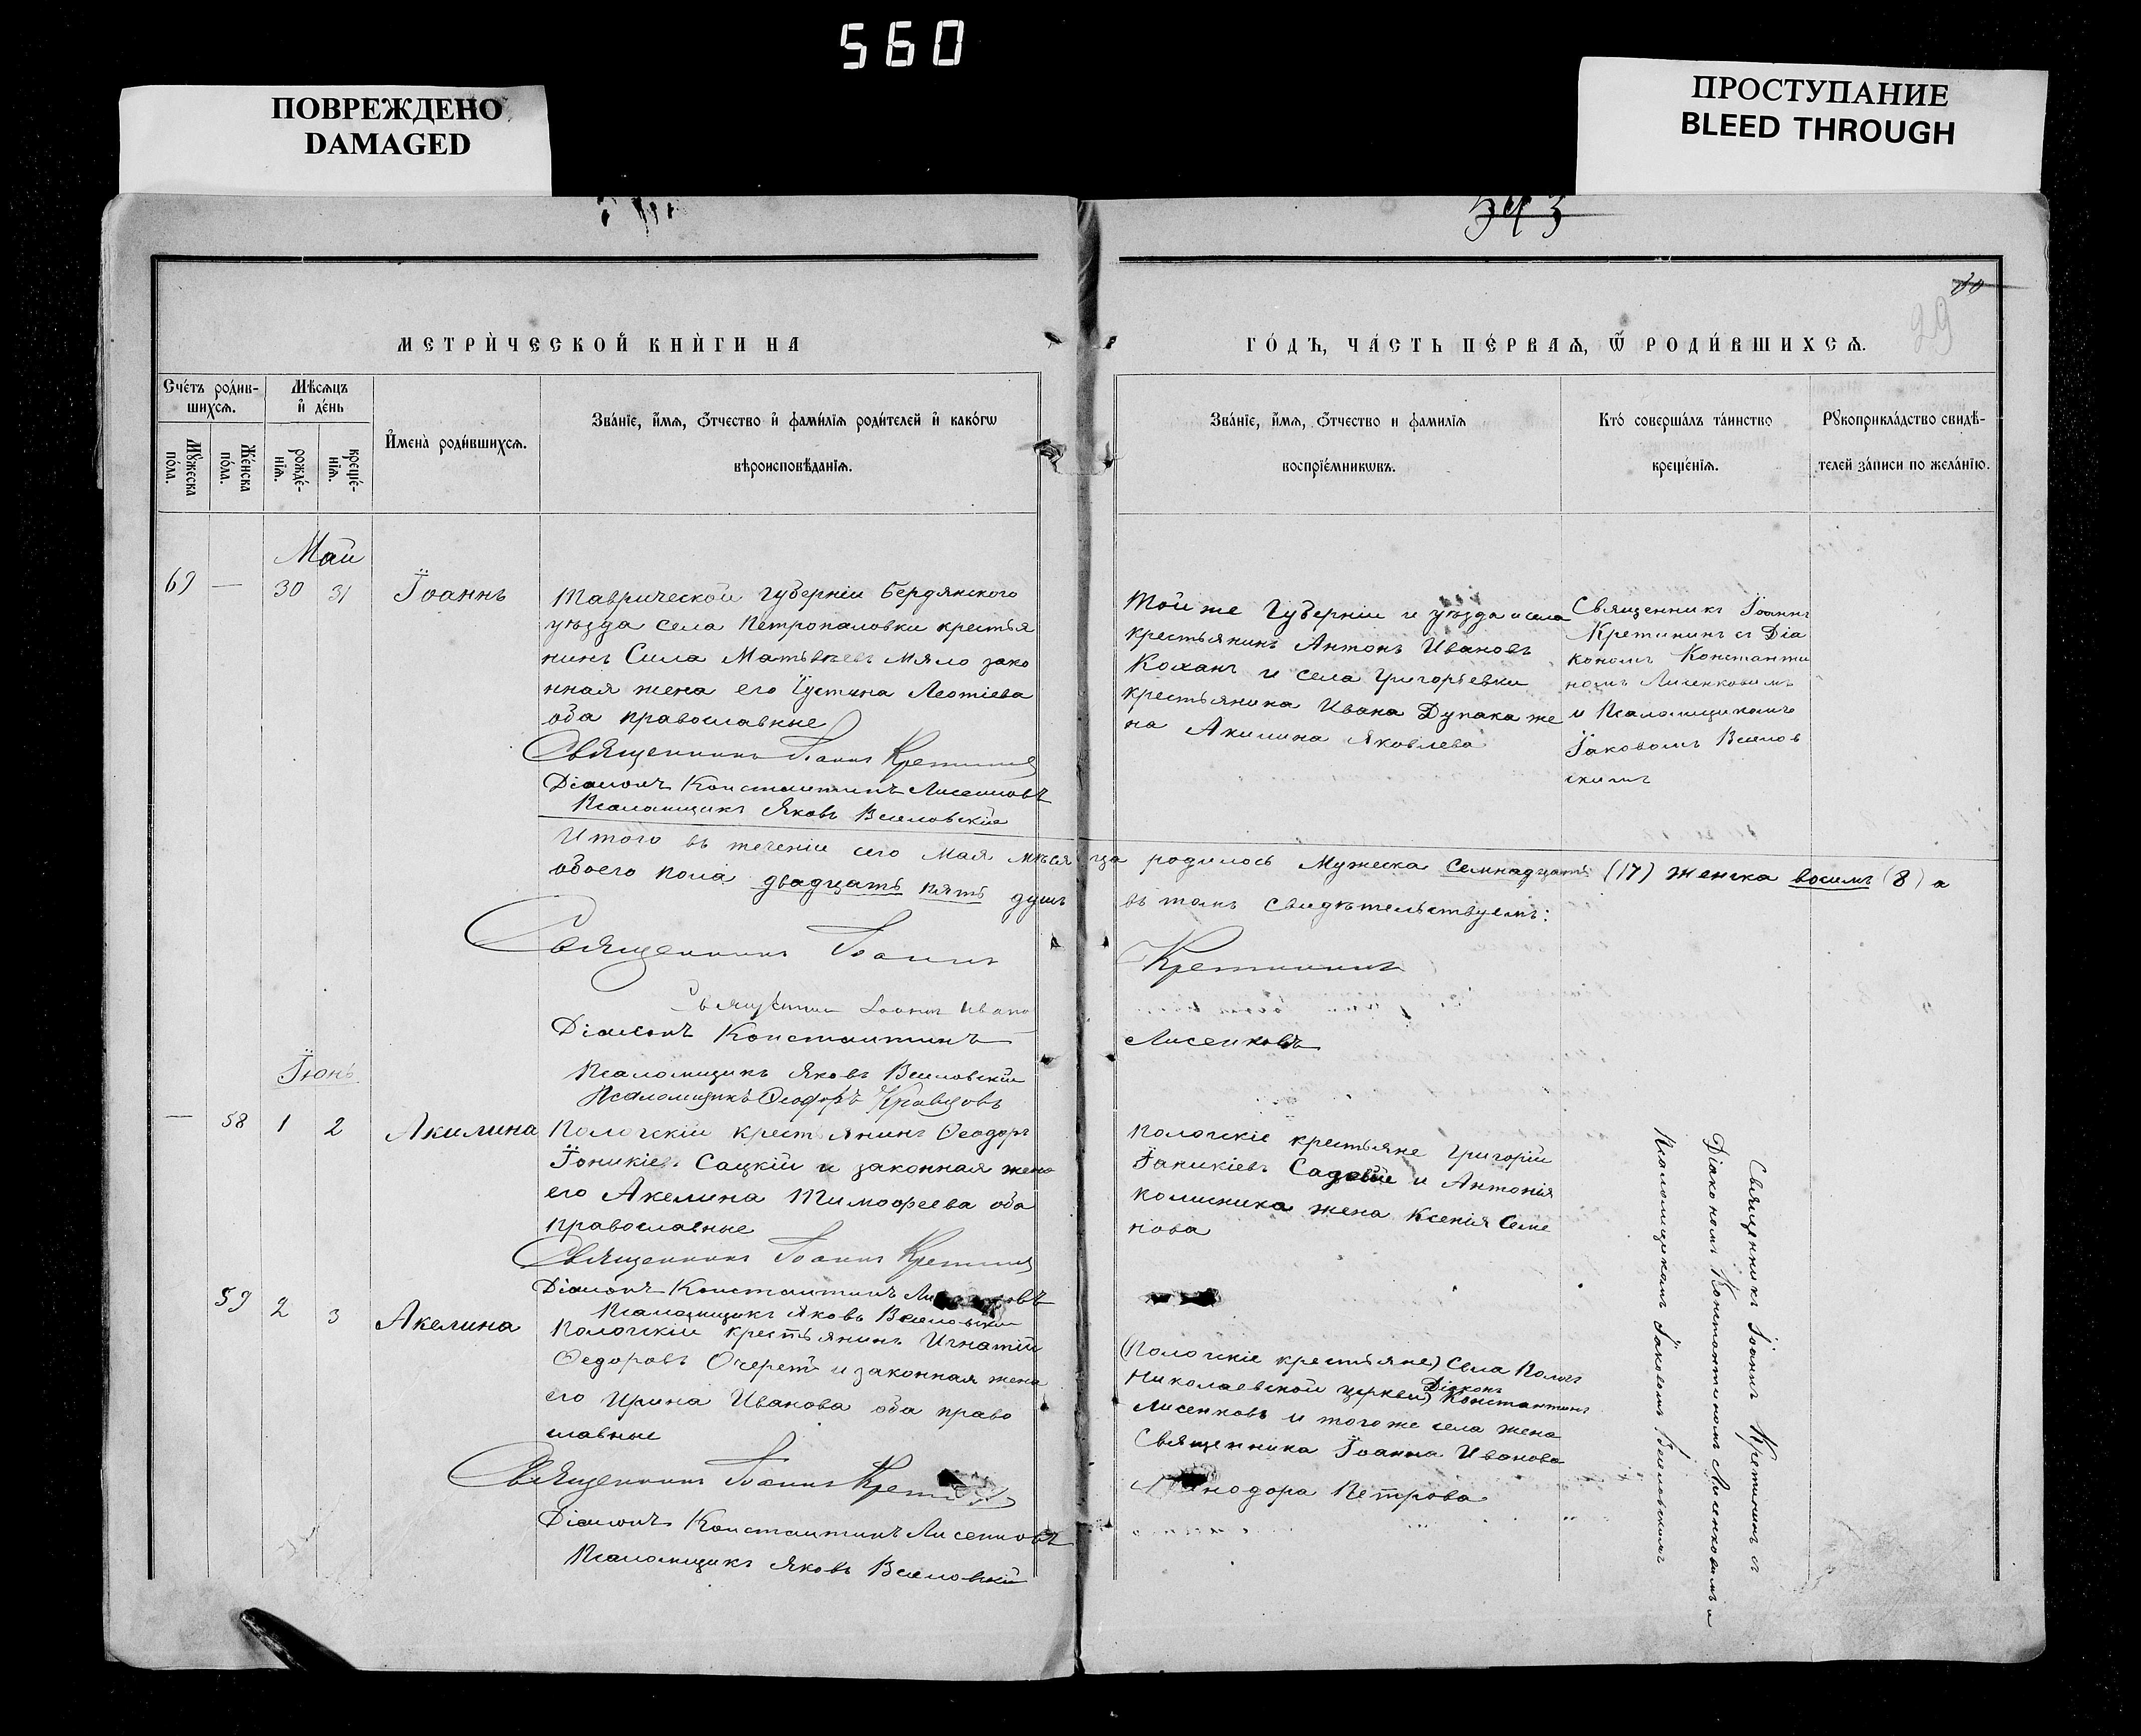 560
ПОВРЕЖДЕНО
DAMAGED
ПРОСТУПАНИЕ
BLEED THROUGH
343
30
29
МЕТРИЧЕСКОЙ КНИГИ НА
ГОДЪ, ЧАСТЬ ПЕРВАѦ, Ѿ РОДИВШИХСѦ.
Счетъ родив-
шихсѧ.
Мѣсѧцъ
и день
Мꙋжеска
пола.
Женска
пола.
рожде-
нїѧ.
креще-
нїѧ.
Имена родившихсѧ.
Званїе, имѧ, ѻтчество и фамилїѧ родителей и какогѡ
вѣроисповѣданїѧ.
Званїе, имѧ, ѻтчество и фамилїѧ
воспрїемникѡвъ.
Кто совершалъ таинство
крещенїѧ.
Рꙋкоприкладство свидѣ-
телей записи по желанїю.
Май
69 — 30 31 Їоаннъ
Таврической губернiи Бердянского
уѣзда села Петропаловки крестья
нинъ Сила Матвѣевъ Мяло зако
нная жена его Їустина Леотіева
оба православные
Священникъ Іоаннъ Кретининъ
Діаконъ Константинъ Лисенковъ
Псаломщикъ Яковъ Веселовскій
Той же Губерніи и уѣзда и села
крестьянинъ Антонъ Ивановъ
Коханъ и села Григорьевки
крестьянина Ивана Дупака же
на Акилина Яковлева
Священникъ Їоаннъ
Кретининъ съ Діа
кономъ Константи
номъ Лисенковымъ
и Псаломщикомъ
Їаковомъ Веселов
скимъ
Итого въ теченіе сего Мая мѣсяца родилось Мужеска семнадцать (17) женска восемь (8) а
обоего пола двадцать пять душъ въ томъ свидѣтельствуемъ:
Священникъ Іоаннъ Кретининъ
Священникъ Іоаннъ Ивано
Діаконъ Константинъ Лисенковъ
Псаломщикъ Яковъ Веселовскій
Псаломщикъ Ѳеодоръ Кравцовъ
Їюнь
— 58 1 2 Акилина
Пологскій крестьянинъ Ѳеодоръ
Їоникіев. Сацкій и законная жена
его Акелина Тимоѳеева оба
православные
Священникъ Іоаннъ Кретининъ
Діаконъ Константинъ
Псаломщикъ Яковъ Веселовскій
Пологскіе крестьяне Григорій
Їаникіевъ и Антонія
колисника жена Ксенія Семе
нова
59 2 3 Акелина
Пологскій крестьянинъ Игнатій
Ѳедоровъ Очеретъ и законная жена
его Ирина Иванова оба право
славные
Священникъ Іоаннъ
Діаконъ Константинъ Лисенковъ
Псаломщикъ Яковъ Веселовскій
(Пологскіе крестьяне) Села Пологъ
Николаевской церкви) Діаконъ Константинъ
Лисенковъ и того же села жена
Священника Їоанна Иванова
Петрова
Священникъ Їоаннъ Кретининъ съ
Діакономъ Константиномъ Лисенковымъ и
Псаломщикомъ Їаковомъ Веселовскимъ